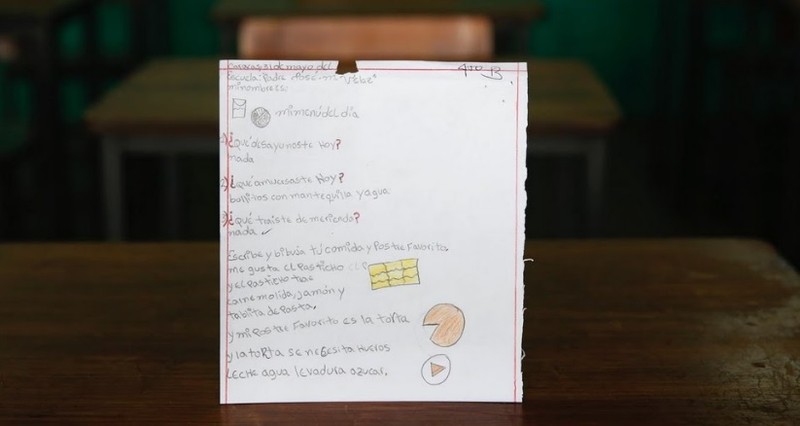 Caracas 31 de mayo del
4to B
Escuela: Padre José M. Vélaz"
minombrees:
mimenú del día
1) ¿qué desayunoste Hoy?
nada
2) ¿qué amuersaste Hoy?
bullitos con mantequilla yagua
3) ¿qué traiste de merienda?
nada
Escribe y bibuja tú comida y Postre Favoritos
me gusta el Pasticho
y el Pasticho trae
carne molida, jamón y
tablita de Pasta.
y mi Postre Favorito es la torta
y la torta se nesesita Huevos
Leche agua levadura azucar.